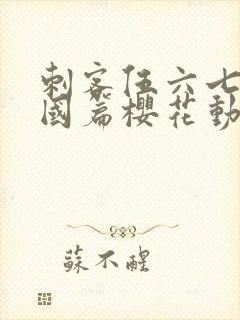 刺客伍六七
國篇櫻花動
蘇不醒